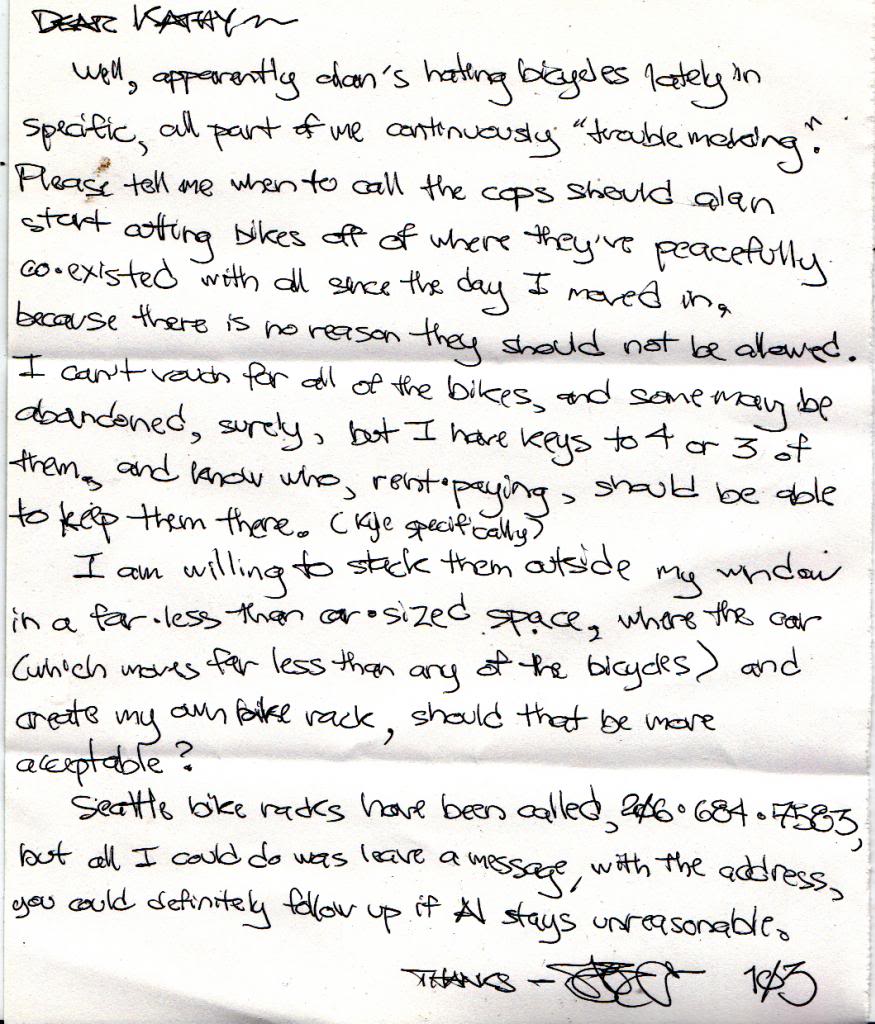 DEAR KATHY~
Well, apparently alan's hating bicycles lately in
specific, all part of me continuously "troublemaking".
Please tell me when to call the cops should alan
start cutting bikes off of where they've peacefully
co-existed with all since the day I moved in,
because there is no reason they should not be allowed.
I can't vouch for all of the bikes, and some may be
abandoned, surely, but I have keys to 4 or 3 of
them, and know who, rent-paying, should be able
to keep them there. (Kyle specifically)
I am willing to stack them outside my window
in a far-less than car-sized space, where the car
(which moves far less than any of the bicycles) and
create my own bike rack, should that be more
acceptable?
Seattle bike racks have been called, 206.684.7583,
but all I could do was leave a message, with the address,
you could definitely follow up if Al stays unreasonable.
THANKS — 103